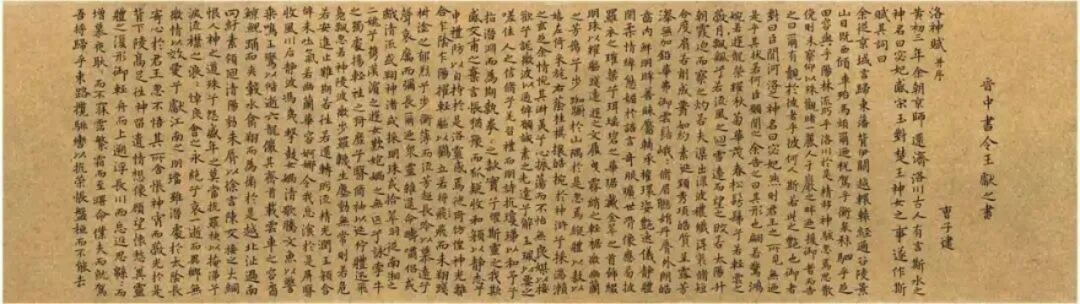 晉中書令王獻之書
曹子建
洛神賦 并序
黃初三年余朝京師還濟洛川古人有言斯水之
神名曰宓妃感宋玉對楚王神女之事遂作斯
賦其詞曰
余從京域言歸東藩背伊闕越轘轅經通谷陵景
山日既西傾車殆馬煩爾迺稅駕乎蘅皋秣駟乎芝
田容與乎陽林流眄乎洛川於是精移神駭忽焉思散
俯則未察仰以殊觀睹一麗人于巖之畔迺援御者而告
之曰爾有覿於彼者乎彼何人斯若此之艷也御者
對曰臣聞河洛之神名曰宓妃然則君王之所見無迺
是乎其狀若何臣願聞之余告之曰其形也翩若驚鴻
婉若遊龍榮曜秋菊華茂春松髣髴兮若輕雲之
蔽月飄颻兮若流風之迴雪遠而望之皎若太陽升
朝霞迫而察之灼若芙蕖出淥波穠纖得衷脩短
合度肩若削成腰如約素延頸秀項皓質呈露芳
澤無加鉛華弗御雲髻峩峩脩眉聯娟丹脣外朗皓
齒內鮮明眸善睞靨輔承權瓌姿艷逸儀靜體
閑柔情綽態媚於語言奇服曠世骨像應圖披
羅衣之璀粲兮珥瑤碧之華琚戴金翠之首飾綴
明珠以耀軀踐遠遊之文履曳霧綃之輕裾微幽蘭
之芳藹兮步踟躕於山隅於是忽焉縱體以遨以
嬉左倚采旄右蔭桂旗攘皓腕於神滸兮採湍瀨
之玄芝余情悅其淑美兮心振蕩而不怡無良媒以接
歡兮託微波以通辭願誠素之先達兮解玉佩以要之
嗟佳人之信脩兮羌習禮而明詩抗瓊珶以和予兮
指潛淵而為期執拳拳之款實兮懼斯靈之我欺
感交甫之棄言悵猶豫而狐疑收和顏以靜志兮
申禮防以自持於是洛靈感焉徙倚彷徨神光離
合乍陰乍陽擢輕軀以鶴立若將飛而未翔踐
椒塗之郁烈兮步蘅薄而流芳超長吟以慕遠兮
聲哀厲而彌長爾迺衆靈雜遝命儔嘯侶或
戲清流或翔神渚或採明珠或拾翠羽從南湘之
二妃兮攜漢濱之遊女歎匏媧之無匹兮詠牽牛
之獨處揚輕袿之猗靡兮翳脩袖以延佇體迅飛
鳧飄忽若神陵波微步羅襪生塵動無常則若危
若安進止難期若往若還轉眄流精光潤玉顏含
辭未吐氣若幽蘭華容婀娜令我忘湌於是屏翳
收風川后靜波馮夷擊鼓女媧清歌騰文魚以警
乘鳴玉鸞以偕逝六龍儼其齊首載雲車之容裔
鯨鯢踊而夾轂水禽翔而為衛於是越北沚過南
岡紆素領迴清陽動朱脣以徐言陳交接之大綱
恨神人之道殊兮怨盛年之莫當抗羅袂以掩涕兮
淚流襟之浪浪悼良會之永絕兮哀一逝而異鄉無
微情以效愛兮獻江南之明璫雖潛處於太陰長
寄心於君王忽不悟其所舍悵神霄而蔽光於是
背下陵高足往神留遺情想像顧望懷愁冀靈
體之復形御輕舟而上遡浮長川而忘返思緜緜而
增慕夜耿耿而不寐霑繁霜而至曙命僕夫而就駕
吾將歸乎東路攬騑轡以抗策悵盤桓而不能去